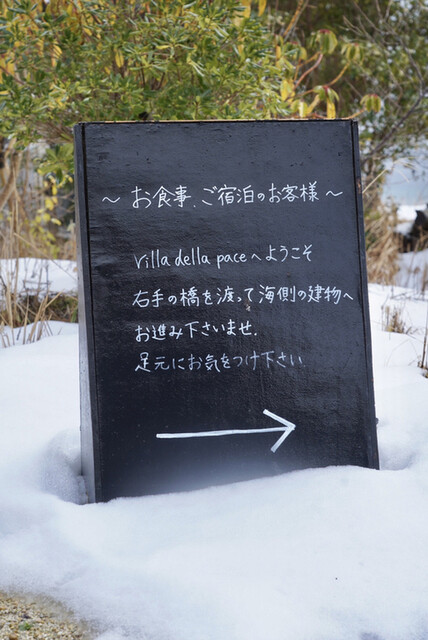 ～お食事、ご宿泊のお客様～
Villa della paceへようこそ
右手の橋を渡って海側の建物へ
お進み下さいませ.
足元にお気をつけ下さい